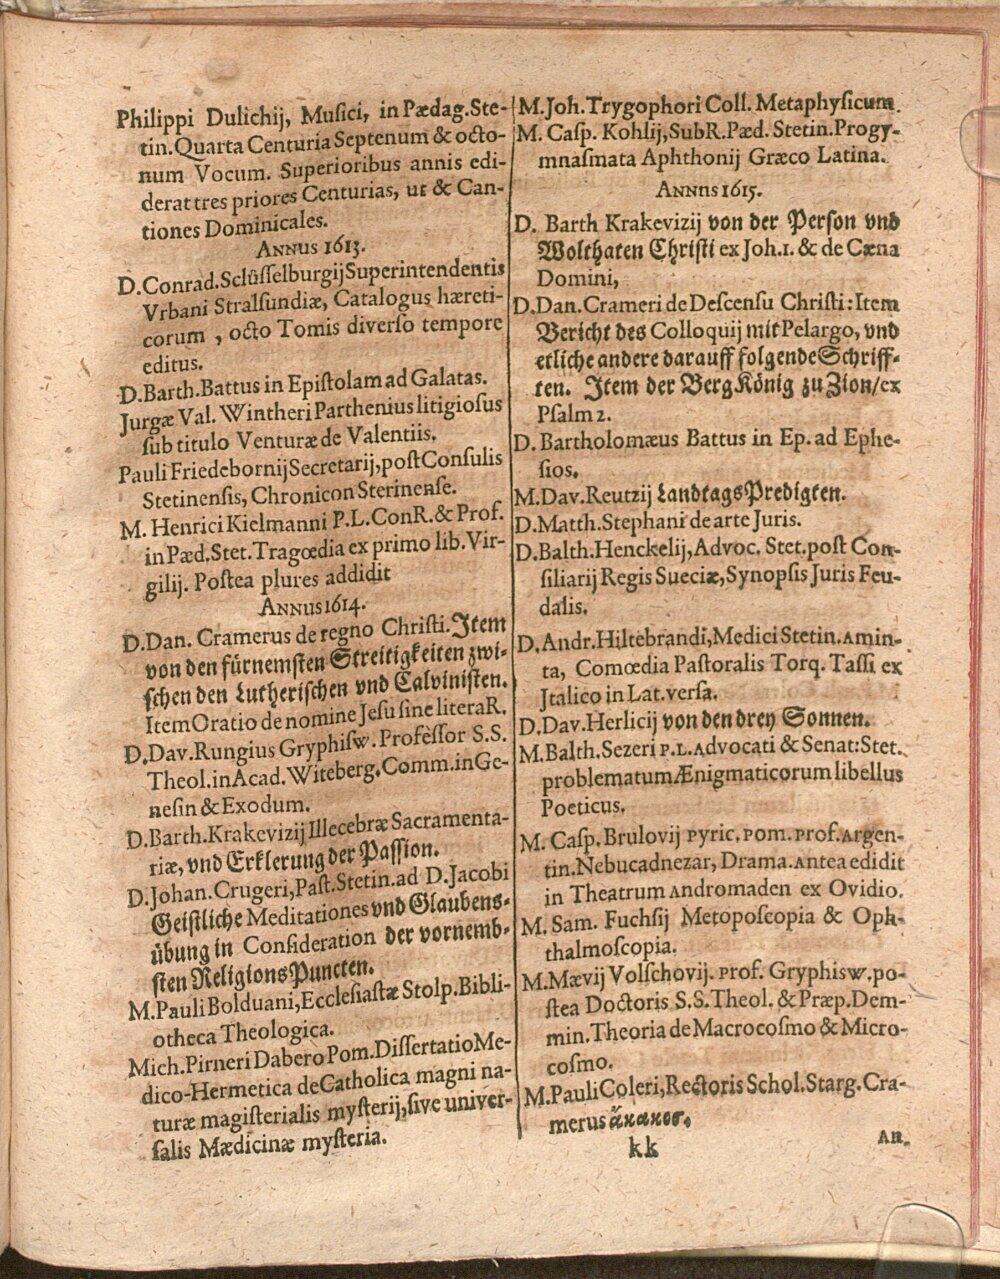 Philippi Dulichij, Musici, in Pædag. Ste-
tin. Quarta Centuria Septenum & octo-
num Vocum. Superioribus annis edi-
derat tres priores Centurias, ut & Can-
tiones Dominicales.
ANNUS 1613.
D. Conrad. Sclüſſelburgij Superintendentis
Vrbani Stralſundiæ, Catalogus hæreti-
corum, octo Tomis diverſo tempore
editus.
D. Barth. Battus in Epiſtolam ad Galatas.
Jurgæ Val. Wintheri Parthenius litigioſus
ſub titulo Venturæ de Valentiis.
Pauli Friedebornij Secretarij, poſt Conſulis
Stetinenſis, Chronicon Sterinenſe.
M. Henrici Kielmanni P. L. ConR. & Prof.
in Pæd. Stet. Tragœdia ex primo lib. Vir-
gilij. Poſtea plures addidit
ANNUS 1614.
D. Dan. Cramerus de regno Chriſti. Item
von den fürnemſten Streitigkeiten zwi-
ſchen den Lutheriſchen vnd Calviniſten.
Item Oratio de nomine Jeſu ſine litera R.
D. Dav. Rungius Gryphiſw. Profeſſor S. S.
Theol. in Acad. Witeberg. Comm. in Ge-
neſin & Exodum.
D. Barth. Krakevizij Illecebræ Sacramenta-
riæ, vnd Erklerung der Paſſion.
D. Johan. Crugeri, Paſt. Stetin. ad D. Jacobi
Geiſtliche Meditationes vnd Glaubens-
übung in Conſideration der vornemb-
ſten Religions Puncten.
M. Pauli Bolduani, Eccleſiaſtæ Stolp. Bibli-
otheca Theologica.
Mich. Pirneri Dabero Pom. Diſſertatio Me-
dico-Hermetica de Catholica magni na-
turæ magiſterialis myſterij, ſive univer-
ſalis Mædicinæ myſteria.
M. Joh. Trygophori Coll. Metaphyſicum.
M. Caſp. Kohlij, SubR. Pæd. Stetin. Progy-
mnaſmata Aphthonij Græco Latina.
ANNUS 1615.
D. Barth Krakevizij von der Perſon vnd
Wolthaten Chriſti ex Joh. 1. & de Cæna
Domini,
D. Dan. Crameri de Deſcenſu Chriſti: Item
Bericht des Colloquij mit Pelargo, vnd
etliche andere darauff folgende Schriff-
ten. Item der Berg König zu Zion/ ex
Pſalm 2.
D. Bartholomæus Battus in Ep. ad Ephe-
ſios.
M. Dav. Reutzij Landtags Predigten.
D. Matth. Stephani de arte Juris.
D. Balth. Henckelij, Advoc. Stet. poſt Con-
ſiliarij Regis Sueciæ, Synopſis Juris Feu-
dalis.
D. Andr. Hiltebrandi, Medici Stetin. Amin-
ta, Comœdia Paſtoralis Torq. Taſſi ex
Jtalico in Lat. verſa.
D. Dav. Herlicij von den drey Sonnen.
M. Balth. Sezeri P. L. Advocati & Senat: Stet.
problematum Ænigmaticorum libellus
Poeticus.
M. Caſp. Brulovij Pyric. Pom. Prof. Argen-
tin. Nebucadnezar, Drama. Antea edidit
in Theatrum Andromaden ex Ovidio.
M. Sam. Fuchſij Metopoſcopia & Oph-
thalmoſcopia.
M. Mævij Volſchovij. Prof. Gryphisw. po-
ſtea Doctoris S. S. Theol. & Præp. Dem-
min. Theoria de Macrocoſmo & Micro-
coſmo.
M. Pauli Coleri, Rectoris Schol. Starg. Cra-
merus ἄκακος.
kk
An.